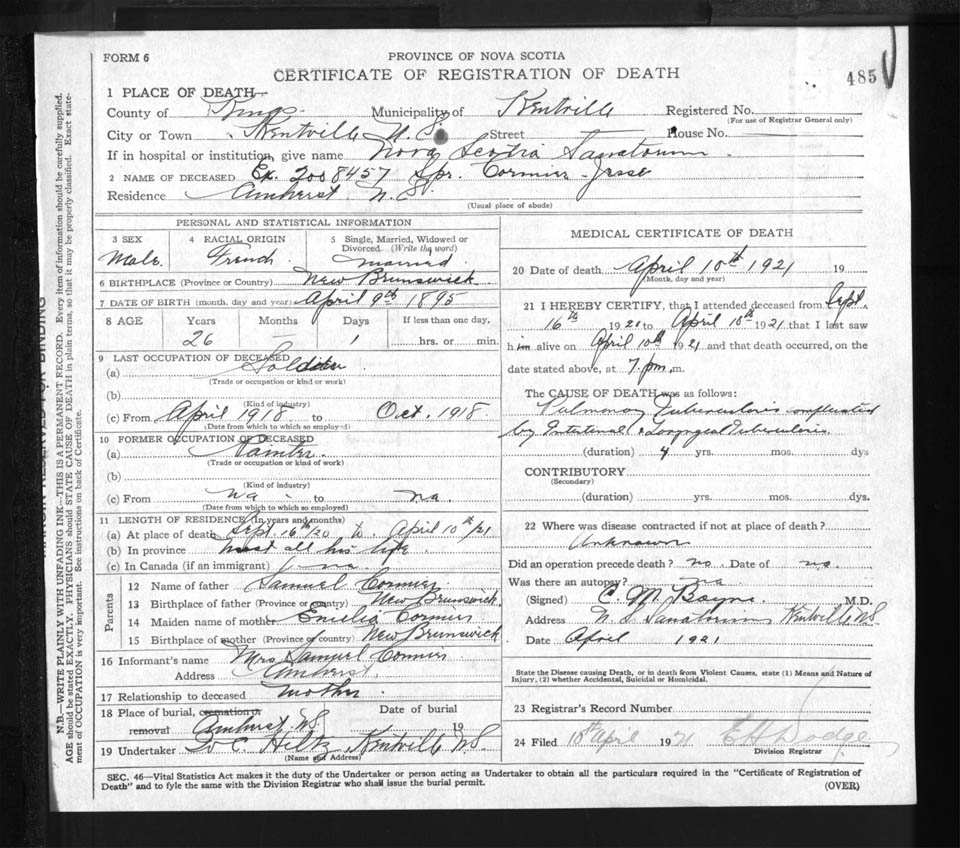 FORM 6
PROVINCE OF NOVA SCOTIA
CERTIFICATE OF REGISTRATION OF DEATH
485
1 PLACE OF DEATH
County of Kings Municipality of Kentville Registered No.
(For use of Registrar General only)
City or Town Kentville N.S. Street House No.
If in hospital or institution, give name Nova Scotia Sanatorium
2 NAME OF DECEASED Ex. 2008457 Spr. Cormier Jesse
Residence Amherst N.S.
(Usual place of abode)
PERSONAL AND STATISTICAL INFORMATION
3 SEX
Male
4 RACIAL ORIGIN
French
5 Single, Married, Widowed or Divorced. (Write the word)
Married
6 BIRTHPLACE (Province or Country) New Brunswick
7 DATE OF BIRTH (month, day and year) April 9th 1895
8 AGE Years Months Days If less than one day.
26 — 1 hrs. or min.
9 LAST OCCUPATION OF DECEASED
(a) Soldier
(Trade or occupation or kind or work)
(b)
(Kind of industry)
(c) From April 1918 to Oct. 1918
(Date from which to which so employed)
10 FORMER OCCUPATION OF DECEASED
(a) Painter
(Trade or occupation or kind of work)
(b)
(Kind of industry)
(c) From na to na.
(Date from which to which so employed)
11 LENGTH OF RESIDENCE (In years and months)
(a) At place of death Sept 16th/20 to April 10th/21
(b) In province most all his life
(c) In Canada (if an immigrant) na.
Parents
12 Name of father Samuel Cormier
13 Birthplace of father (Province or Country) New Brunswick
14 Maiden name of mother Emelia Cormier
15 Birthplace of mother (Province or Country) New Brunswick
16 Informant's name Mrs Samuel Cormier
Address Amherst
17 Relationship to deceased Mother
18 Place of burial, cremation or removal Amherst N.S. Date of burial 19
19 Undertaker C. Hiltz Kentville N.S.
(Name and Address)
MEDICAL CERTIFICATE OF DEATH
20 Date of death April 10th 1921 19
(Month, day and year)
21 I HEREBY CERTIFY, that I attended deceased from Sept.
16th 1920 to April 10th 1921 that I last saw
him alive on April 10th 1921 and that death occurred, on the
date stated above, at 7. p.m. m.
The CAUSE OF DEATH was as follows:
Pulmonary Tuberculosis complicated
by Intestinal & Laryngeal Tuberculosis
(duration) 4 yrs. mos. dys
CONTRIBUTORY
(Secondary)
(duration) yrs. mos. dys.
22 Where was disease contracted if not at place of death?
Unknown
Did an operation precede death? no. Date of no.
Was there an autopsy? na
(Signed) C. M. Bayne M.D.
Address N. S. Sanatorium Kentville N.S.
Date April 1921
State the Disease causing Death, or in death from Violent Causes, state (1) Means and Nature of Injury, (2) whether Accidental, Suicidal or Homicidal.
23 Registrar's Record Number
24 Filed 10th April 1921 E H Dodge
Division Registrar
SEC. 46—Vital Statistics Act makes it the duty of the Undertaker or person acting as Undertaker to obtain all the particulars required in the "Certificate of Registration of
Death" and to fyle the same with the Division Registrar who shall issue the burial permit.
(OVER)
MARGIN RESERVED FOR BINDING
N.B.—WRITE PLAINLY WITH UNFADING INK—THIS IS A PERMANENT RECORD. Every item of information should be carefully supplied.
AGE should be stated EXACTLY. PHYSICIANS should STATE CAUSE OF DEATH in plain terms, so that it may be properly classified. Exact state-
ment of OCCUPATION is very important. See instructions on back of Certificate.